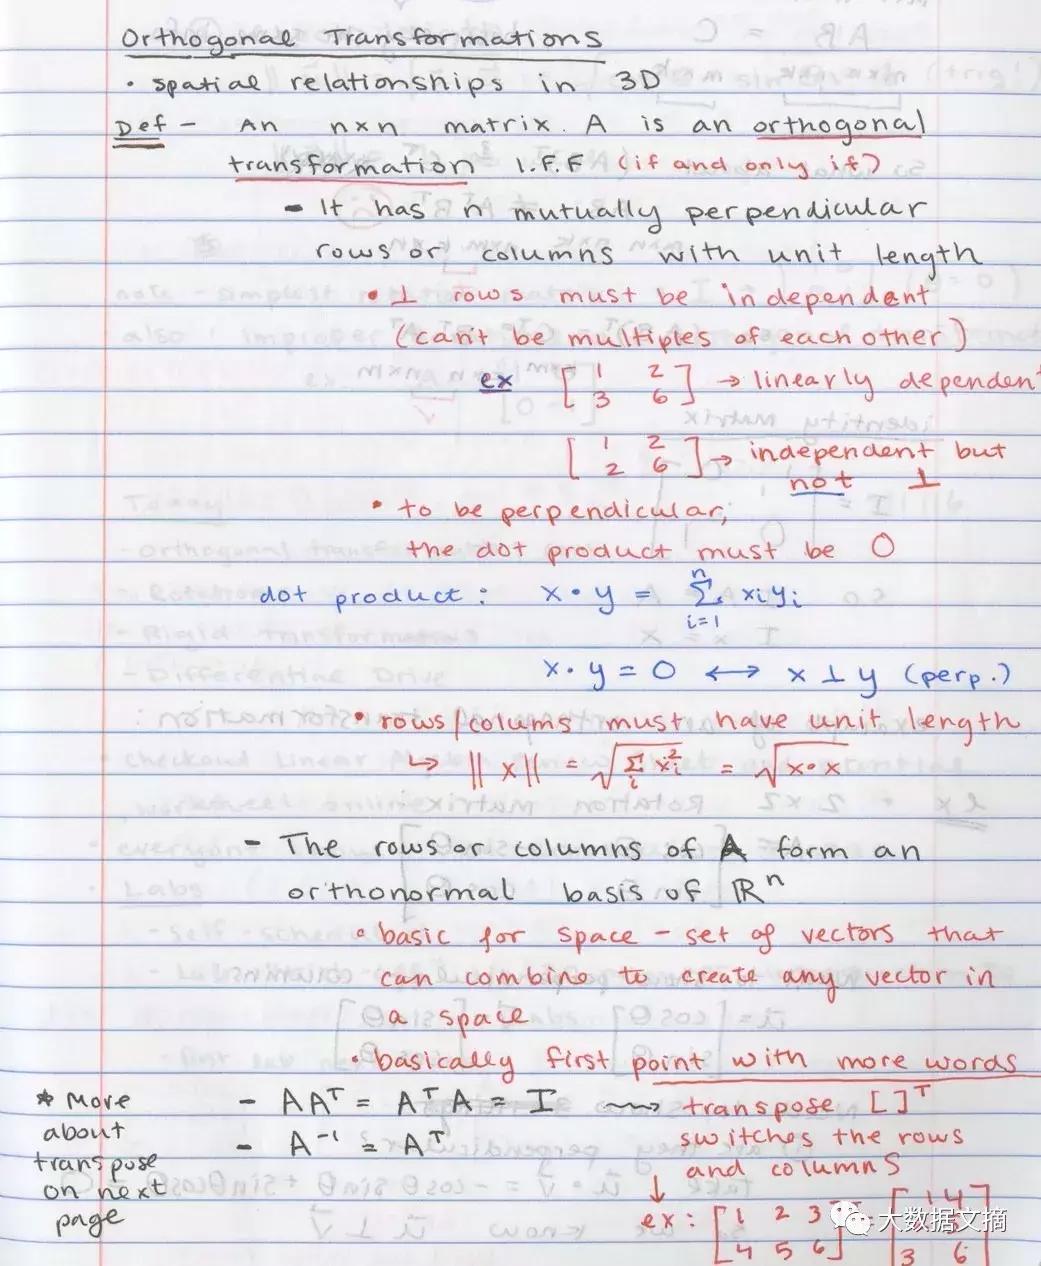 Orthogonal Transformations
• spatial relationships in 3D
Def – An nxn matrix A is an orthogonal
transformation I.F.F (if and only if)
- It has n mutually perpendicular
rows or columns with unit length
• ⊥ rows must be independent
(can't be multiples of each other)
ex [1 2 → linearly dependent
3 6]
[1 2 → independent but
2 6] not ⊥
• to be perpendicular,
the dot product must be 0
dot product: x • y = Σ_{i=1}^{n} x_i y_i
x • y = 0 ↔ x ⊥ y (perp.)
• rows/colums must have unit length
↳ ||x|| = √(Σ_i x_i²) = √(x•x)
- The rows or columns of A form an
orthonormal basis of ℝⁿ
• basic for space – set of vectors that
can combine to create any vector in
a space
• basically first point with more words
- AAᵀ = AᵀA = I ⟿ transpose [ ]ᵀ
- A⁻¹ = Aᵀ switches the rows
and columns
* More
about
transpose
on next
page
↓
ex: [1 2 3 [1 4
4 5 6] 3 6]
大数据文摘